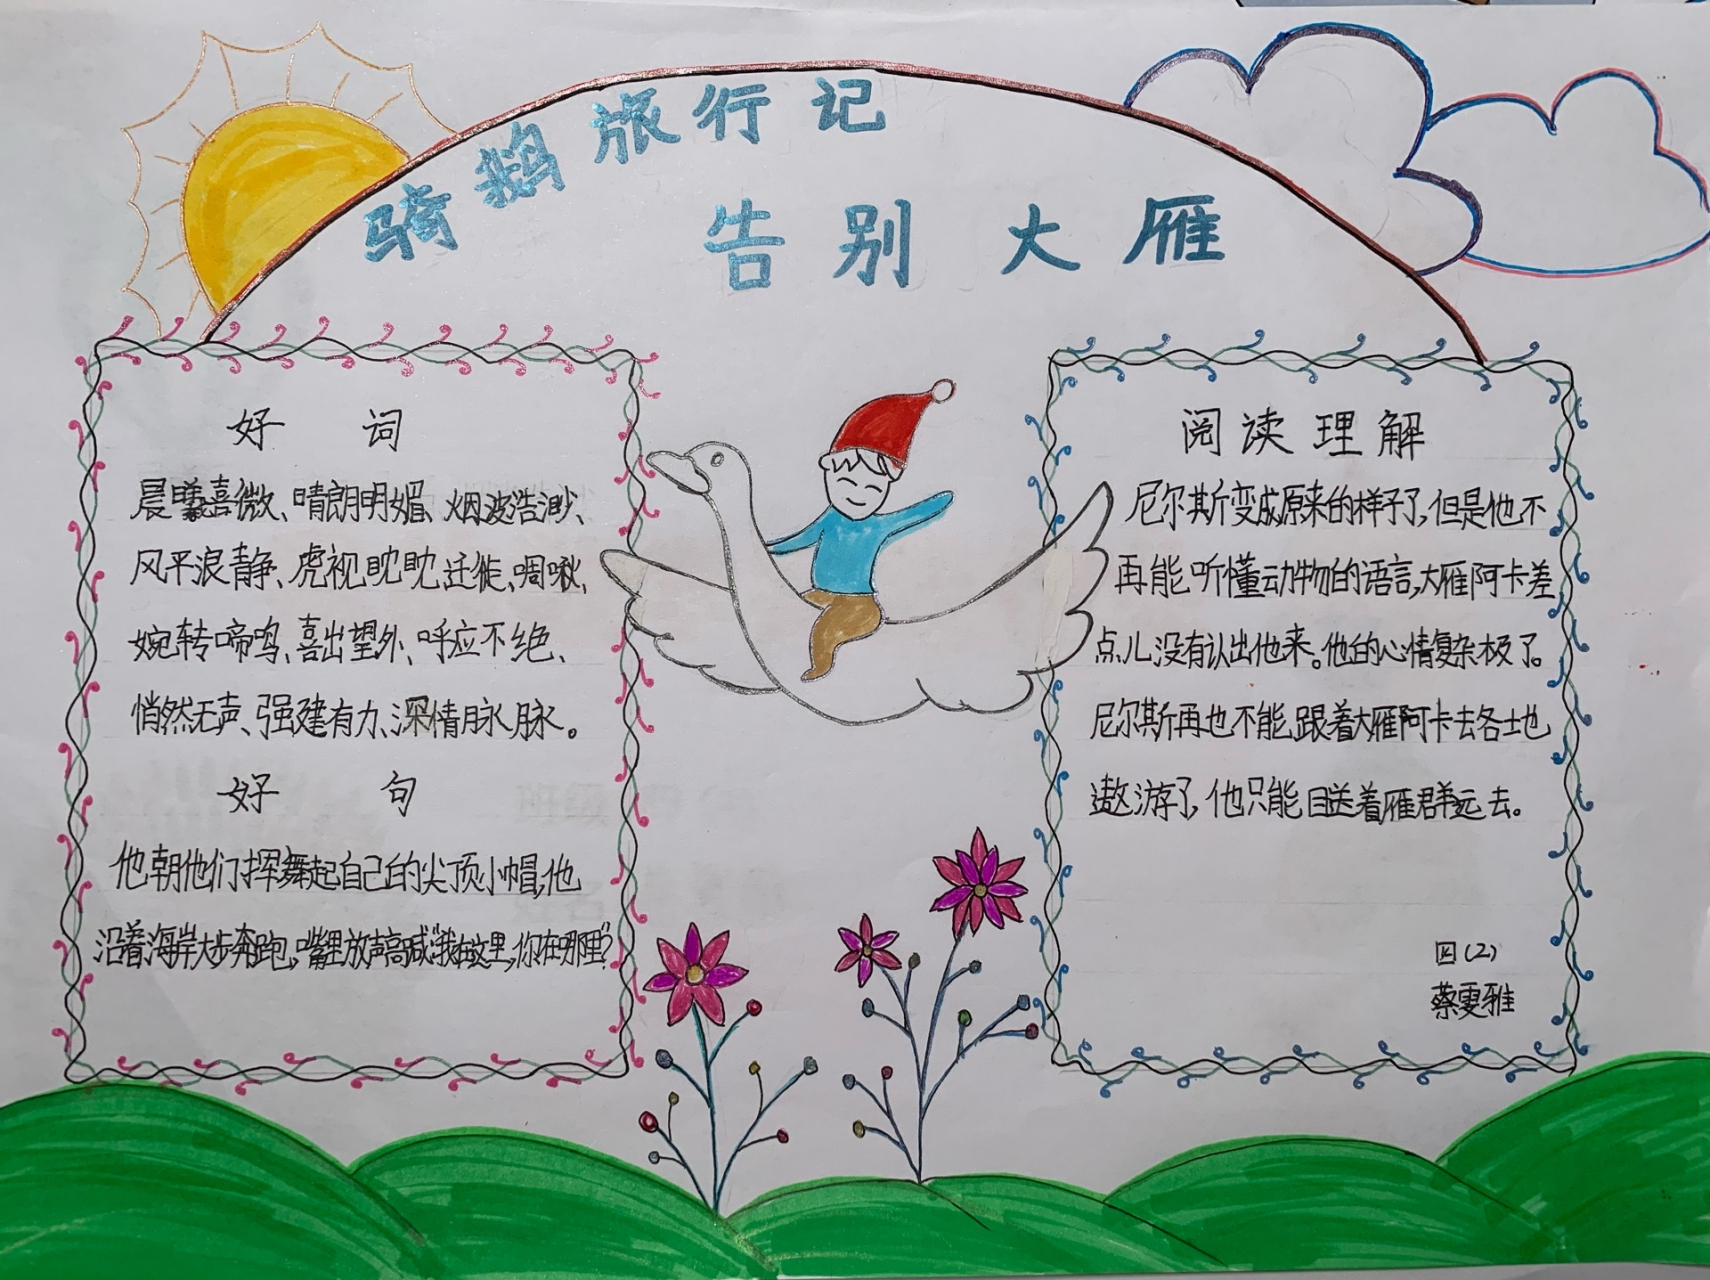 骑鹅旅行记
告别大雁
好 词
晨曦喜微、晴朗明媚、烟波浩渺、
风平浪静、虎视眈眈、迁徙、啁啾、
婉转啼鸣、喜出望外、呼应不绝、
悄然无声、强建有力、深情脉脉。
好 句
他朝他们挥舞起自己的尖顶小帽,他
沿着海岸大步奔跑,嘴里放声高喊“我在这里,你在哪里”?
阅读理解
尼尔斯变成原来的样子了,但是他不
再能听懂动物的语言,大雁阿卡差
点儿没有认出他来。他的心情复杂极了。
尼尔斯再也不能跟着大雁阿卡去各地
遨游了,他只能目送着雁群远去。
四(2)
蔡雯雅